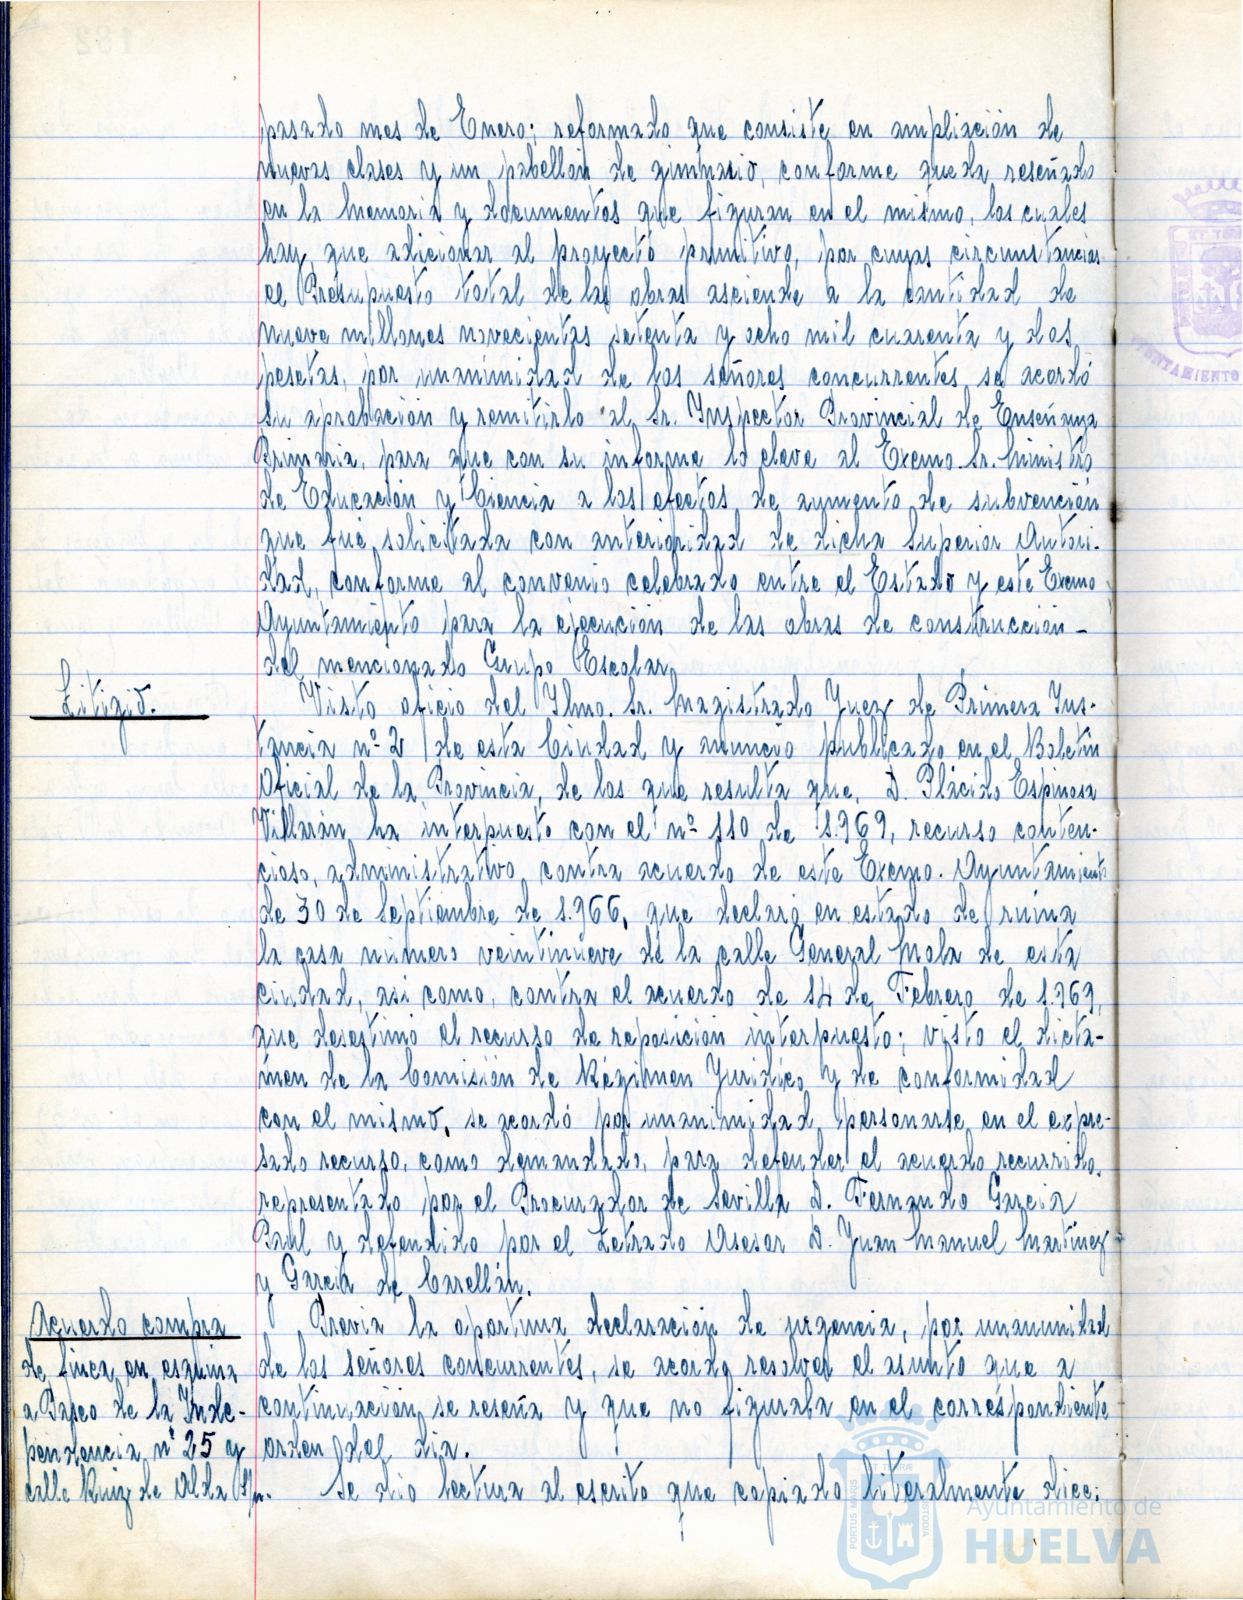 pasado mes de Enero; reformado que consiste en ampliación de
nuevas clases y un pabellón de gimnasio, conforme queda reseñado
en la memoria y documentos que figuran en el mismo, los cuales
hay que adicionar al proyecto primitivo, por cuyas circunstancias
el Presupuesto total de las obras asciende a la cantidad de
nueve millones novecientas setenta y ocho mil cuarenta y dos
pesetas, por unanimidad de los señores concurrentes, se acordó
su aprobación y remitirlo al Sr. Inspector Provincial de Enseñanza
Primaria, para que con su informe lo eleve al Excmo. Sr. Ministro
de Educación y Ciencia a los efectos de aumento de subvención
que fué solicitada con anterioridad de dicha Superior Autori-
dad, conforme al convenio celebrado entre el Estado y este Excmo.
Ayuntamiento para la ejecución de las obras de construcción -
del mencionado Grupo Escolar.
Litigio.
Visto oficio del Ilmo. Sr. Magistrado Juez de Primera Ins-
tancia nº 2 de esta Ciudad y anuncio publicado en el Boletín
Oficial de la Provincia, de los que resulta que, D. Plácido Espinosa
Villarán ha interpuesto con el nº 110 de 1.969, recurso conten-
cioso, administrativo, contra acuerdo de este Excmo. Ayuntamiento
de 30 de Septiembre de 1.966, que declaró en estado de ruina
la casa número veintinueve de la calle General Mola de esta
ciudad, así como, contra el acuerdo de 14 de Febrero de 1.969,
que desestimó el recurso de reposición interpuesto; visto el dictá-
men de la Comisión de Régimen Jurídico y de conformidad
con el mismo, se acordó por unanimidad personarse en el expre-
sado recurso, como demandado, para defender el acuerdo recurrido,
representado por el Procurador de Sevilla D. Fernando García
Paul y defendido por el Letrado Asesor D. Juan Manuel Martínez
y García de Carellán.
Acuerdo compra
de finca en esquina
a Paseo de la Inde-
pendencia nº 25 y
calle Ruiz de Alda s/n.
Previa la oportuna declaración de urgencia, por unanimidad
de los señores concurrentes, se acordó resolver el asunto que a
continuación se reseña y que no figuraba en el correspondiente
orden del día.
Se dió lectura al escrito que copiado literalmente dice:
Ayuntamiento de
HUELVA